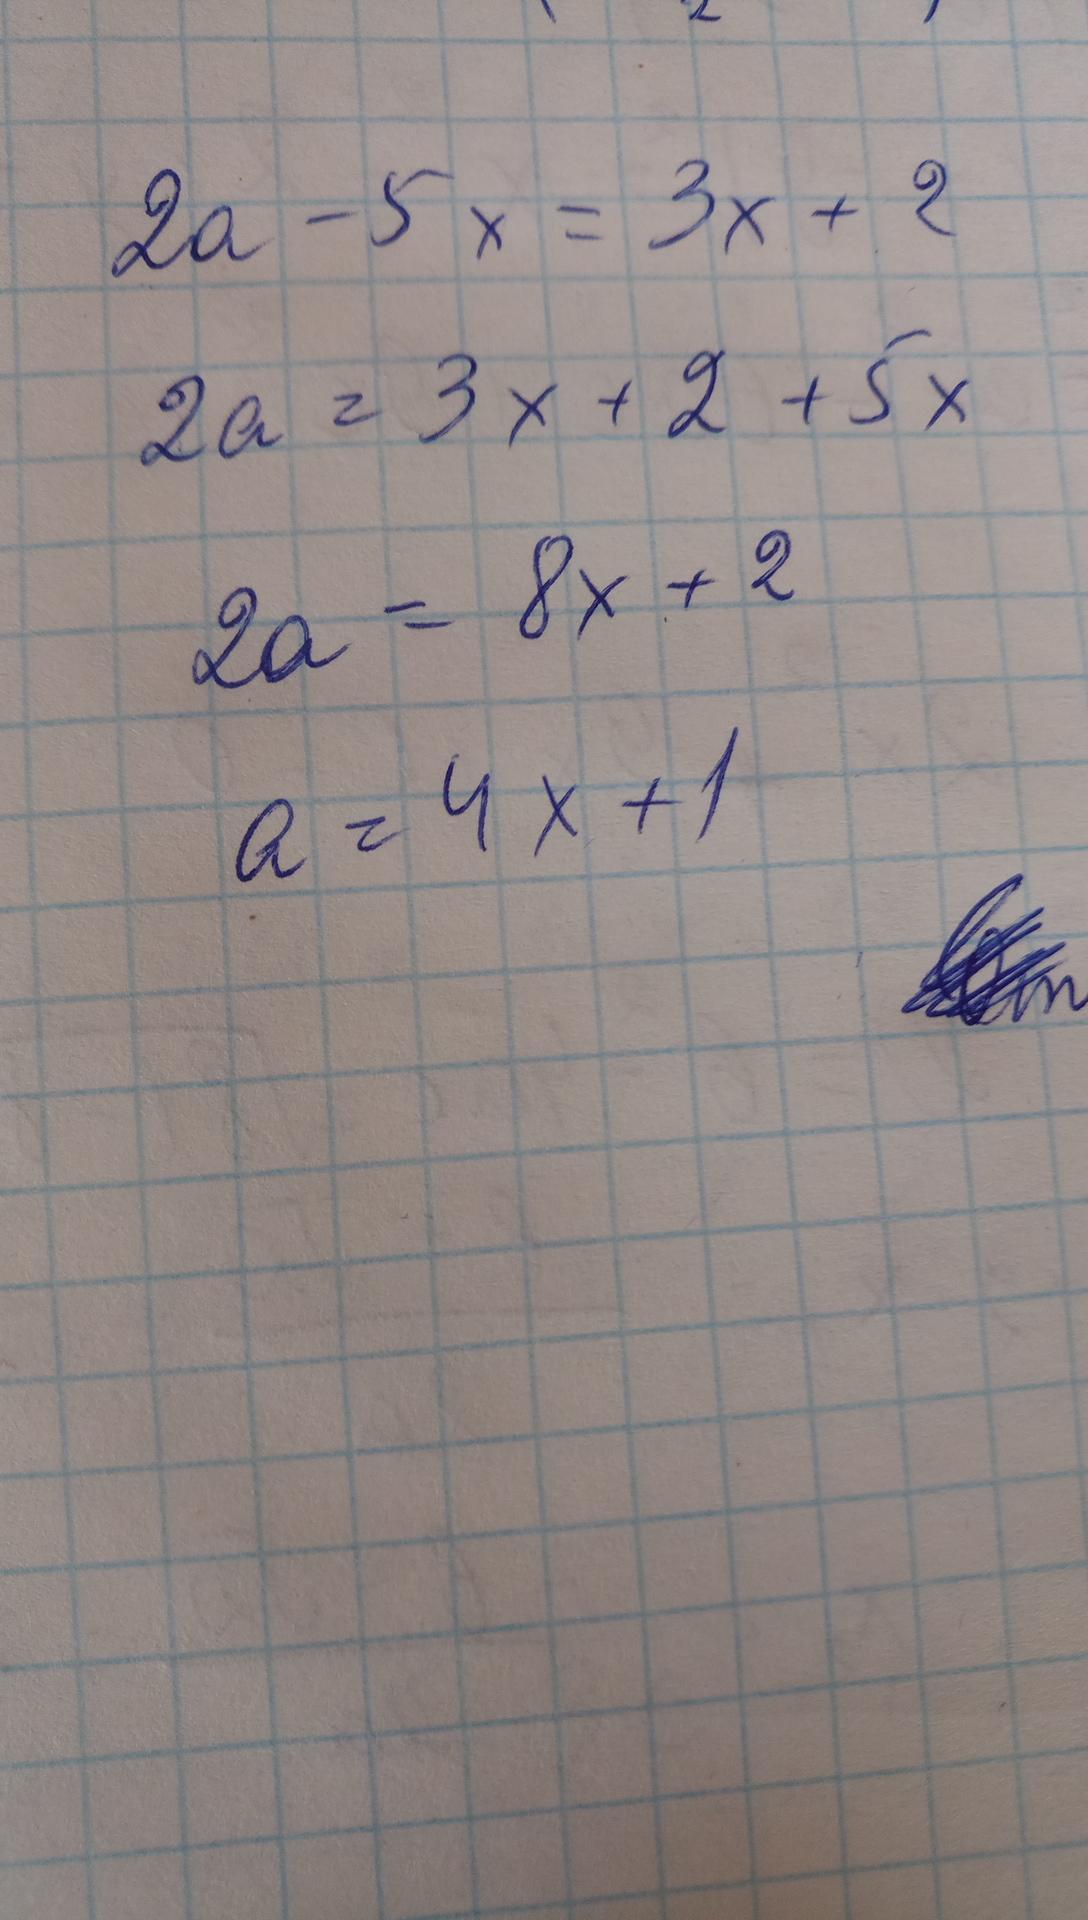 2a - 5x = 3x + 2
2a = 3x + 2 + 5x
2a = 8x + 2
a = 4x + 1